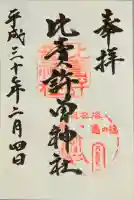 奉拝
比賣許曽神社
平成三十年二月四日